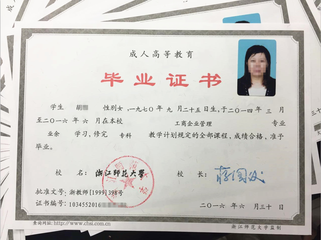 成人高等教育
毕业证书
学生 胡 性别女,一九七〇年九月二十五日生,于二〇一四年三月
至二〇一六年六月在本校 工商企业管理 专业
业余 学习,修完 专科 教学计划规定的全部课程,成绩合格,准予
毕业。
校 名: 浙江师范大学 校 长:
批准文号: 浙教师[1999]398号
证书编号: 1034552016
二〇一六年六月三十日
查询网址: http://www.chsi.com.cn
浙江师范大学监制